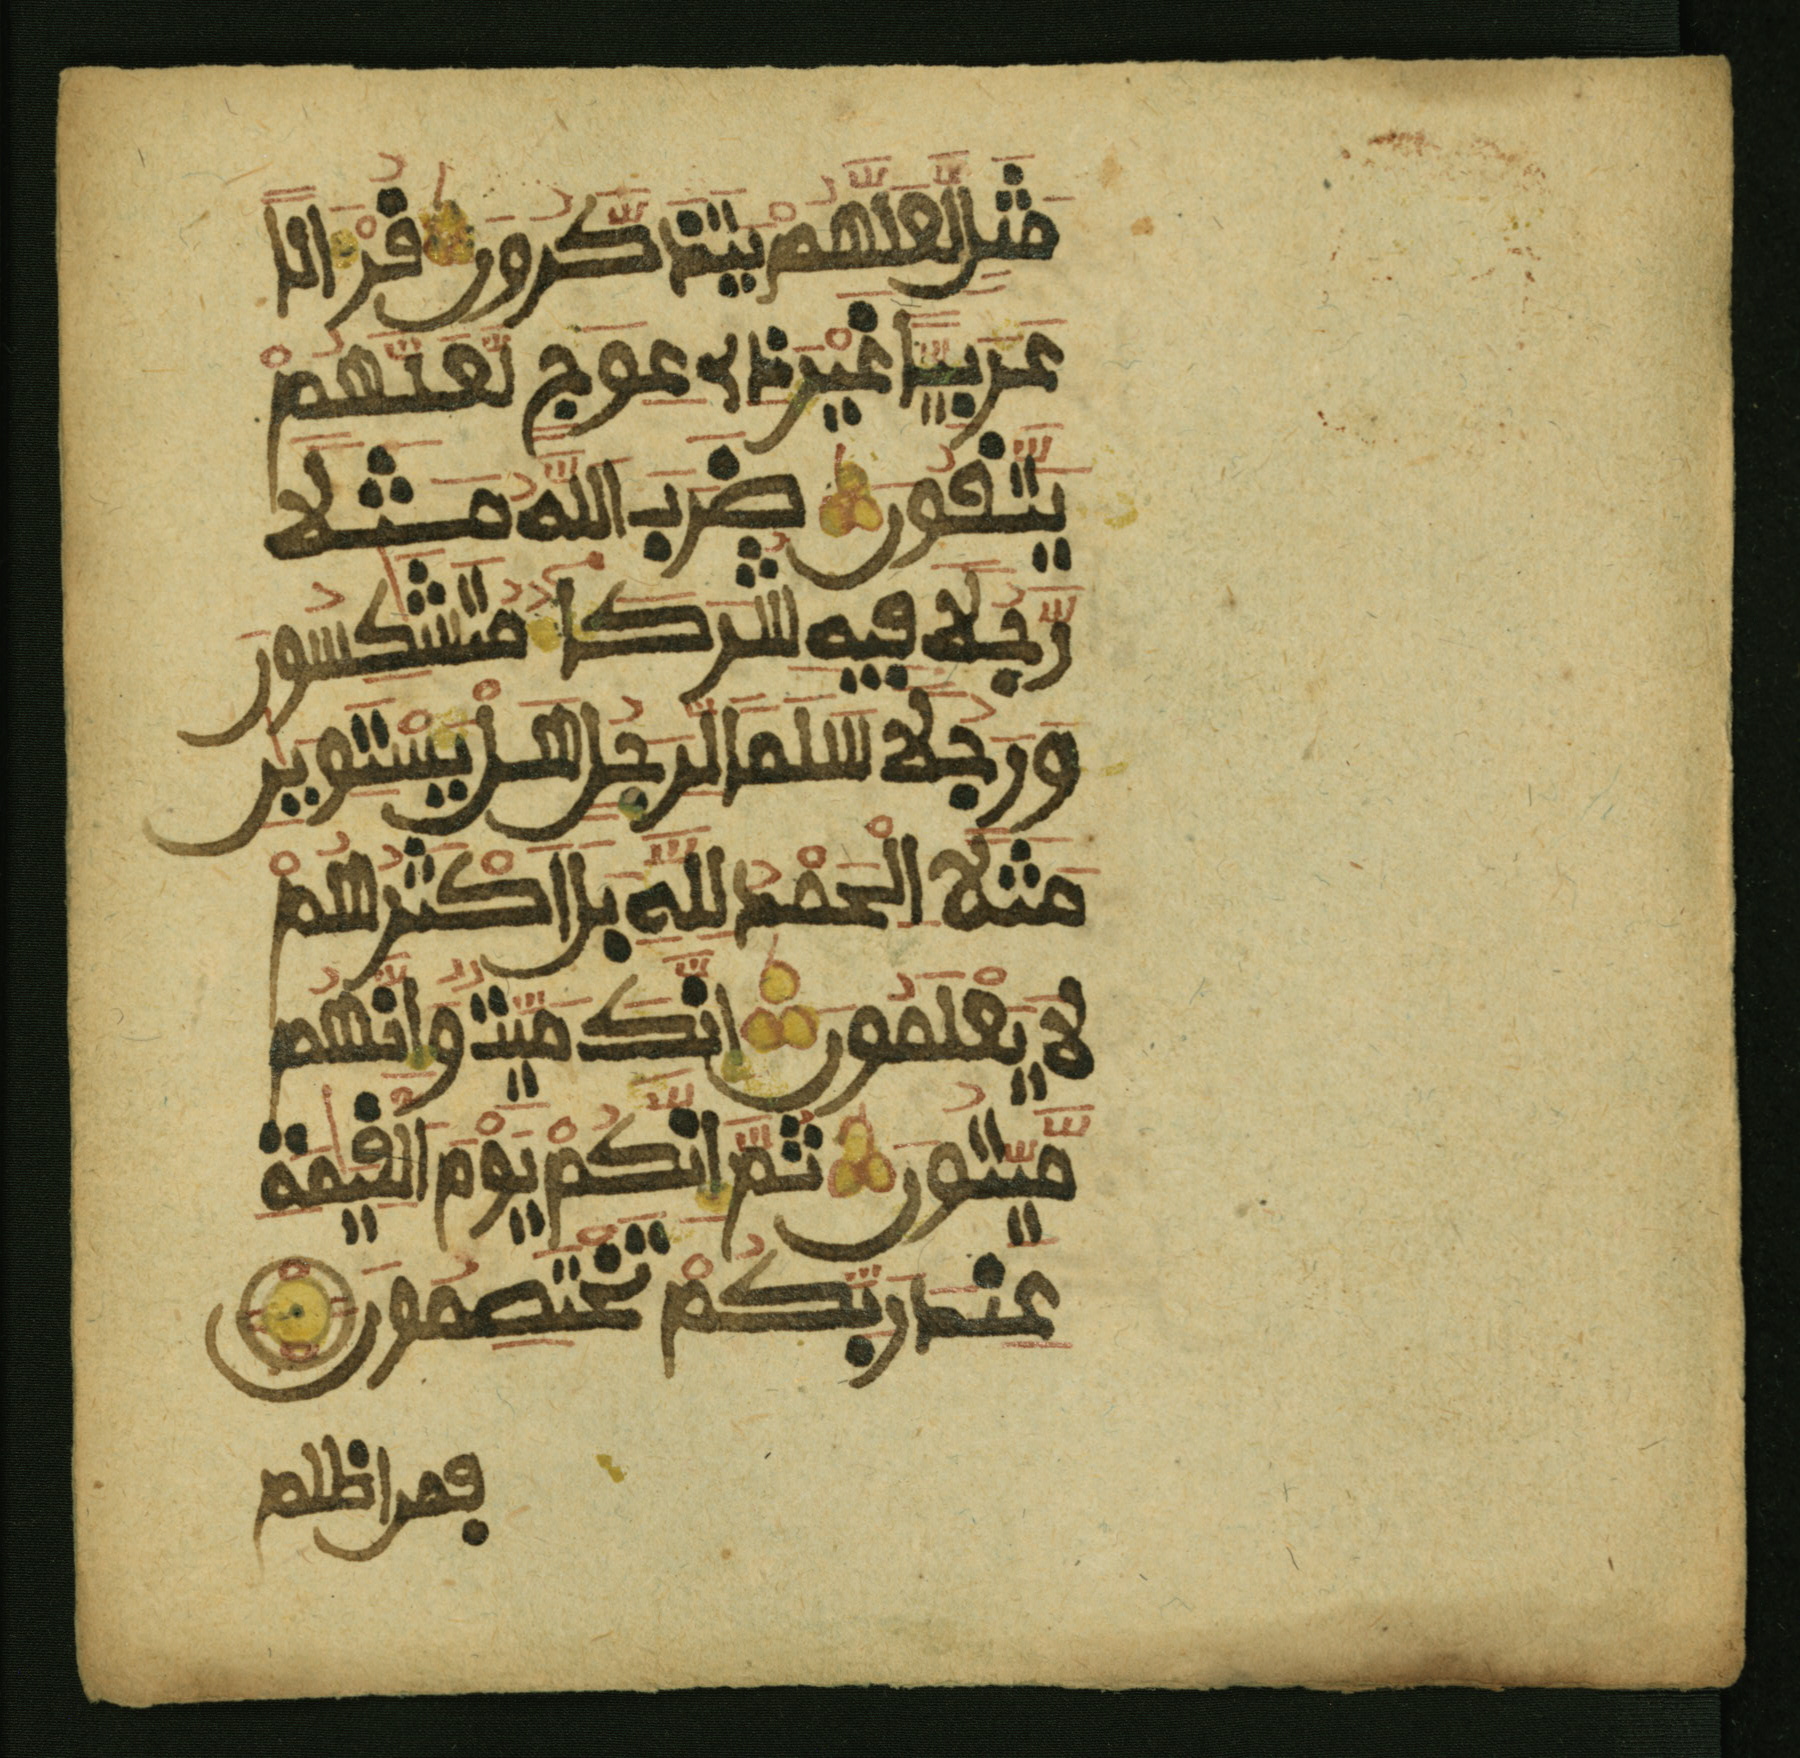 مَثَلٍ لَّعَلَّهُمْ يَتَذَكَّرُونَ قُرْءَانًا
عَرَبِيًّا غَيْرَ ذِى عِوَجٍ لَّعَلَّهُمْ
يَتَّقُونَ ضَرَبَ اللَّهُ مَثَلًا
رَّجُلًا فِيهِ شُرَكَاءُ مُتَشَٰكِسُونَ
وَرَجُلًا سَلَمًا لِّرَجُلٍ هَلْ يَسْتَوِيَٰنِ
مَثَلًا الْحَمْدُ لِلَّهِ بَلْ أَكْثَرُهُمْ
لَا يَعْلَمُونَ إِنَّكَ مَيِّتٌ وَإِنَّهُم
مَّيِّتُونَ ثُمَّ إِنَّكُمْ يَوْمَ الْقِيَٰمَةِ
عِندَ رَبِّكُمْ تَخْتَصِمُونَ
فمن اظلم